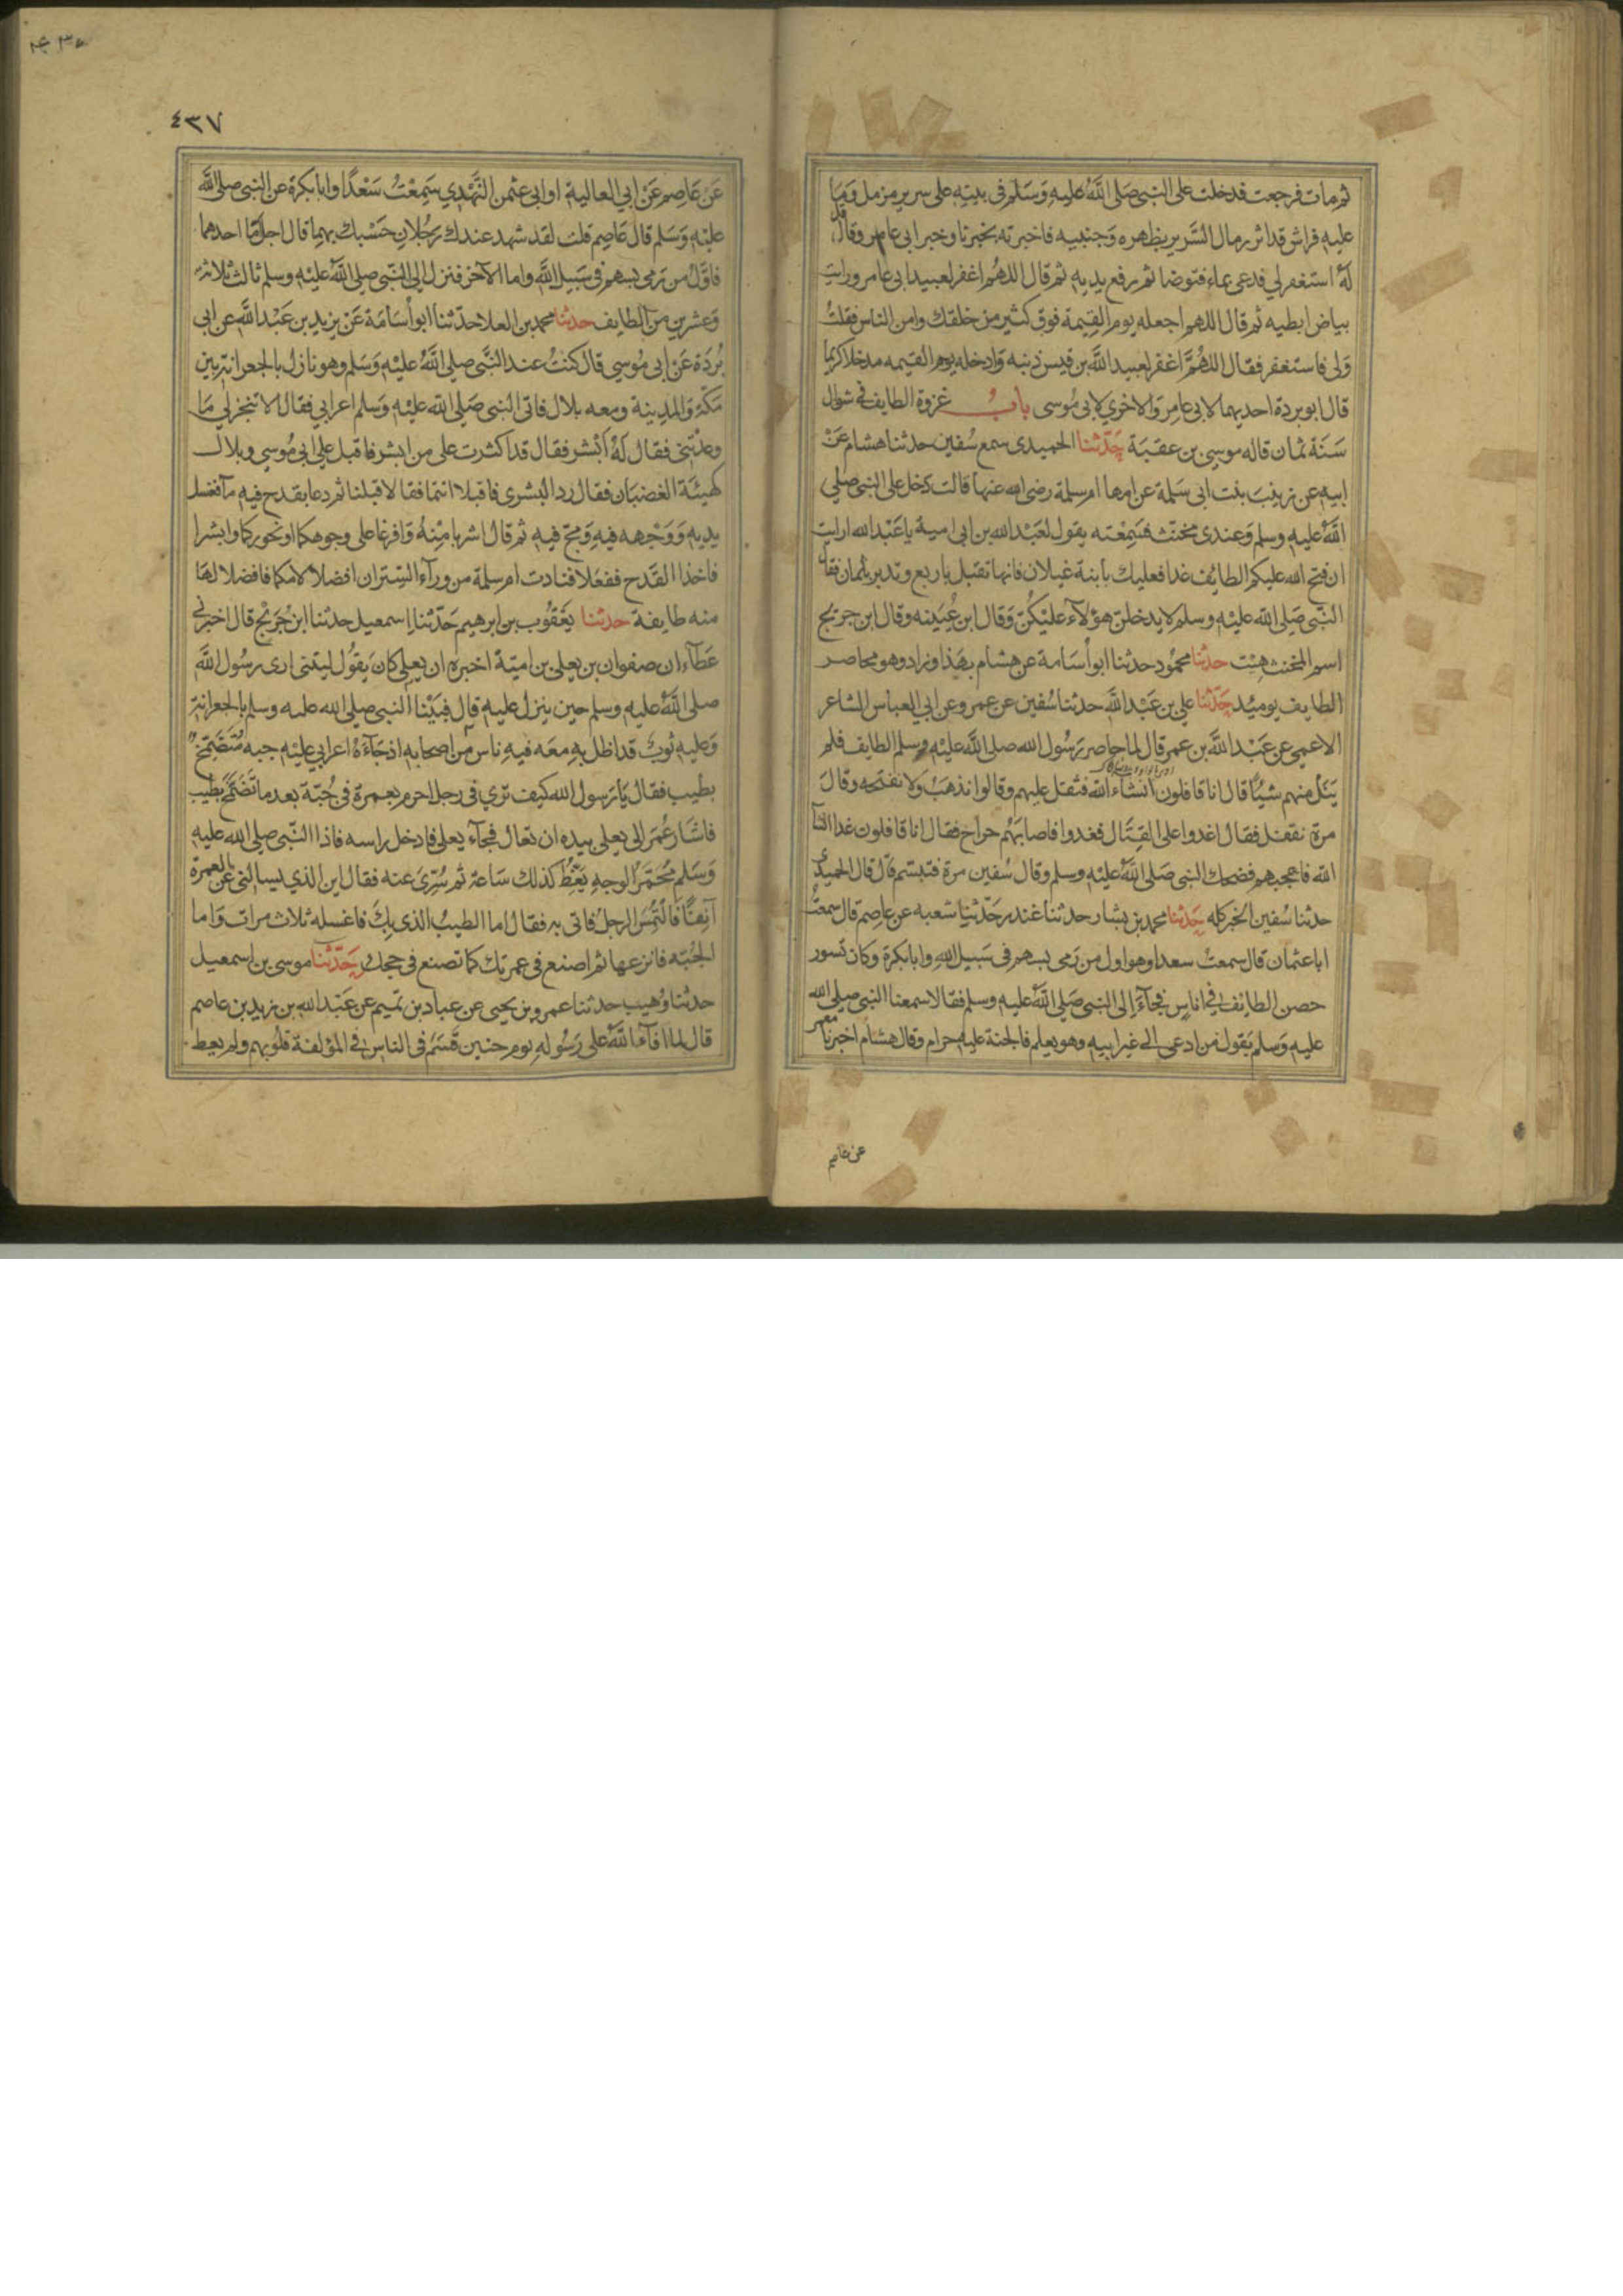 ثم مات فرجعت فدخلت على النبي صَلى اللَّهُ عليهِ وَسَلم في بيتِهِ على سرير مزمل وَمَا
عليهِ فراش قد اثر رمال السَّرير بظهره وَجنبيه فاخبرته بخبرنا وخبر ابي عامر وقال قل
لهُ استغفر لي فدعى بماء فتوضا ثم رفع يديه ثم قال اللهُم اغفر لعبيد ابي عامر ورايت
بياض ابطيه ثم قال اللهم اجعله يوم القِيمة فوق كثير من خلقك وامن الناس فقلتُ
وَلي فاستغفر فقال اللهُمَّ اغفر لعبيد اللَّه بن قيس ذنبه وَادخله يوم القيمه مدخلا كريما
قال ابو بردة احديهما لابي عامِر وَالاخري لابي مُوسى بابُ غزوة الطايف في شوال
سَنَة ثمان قاله موسى بن عقبَة حَدّثنا الحميدى سمع سُفين حدثنا هشام عَنْ
ابيه عن زينبَ بنت ابي سَلمة عن امها ام سلمة رضى الله عنها قالت دَخل على النبي صلي
اللَّهُ عليه وسلم وَعندى مخنث فسَمِعْته يقول لعَبْد الله بن ابي امية يا عَبْد الله ارايت
ان فتح الله عليكم الطائف غدا فعليك بابنة غيلان فانها تقبل باربع وتدبر بثمان فقال
النّبي صَلي الله عليْهِ وسلم لا يدخلنّ هؤلاء عليْكُنّ وَقال ابن عُيَينه وقال ابن جريج
اسم المخنث هِيْت حدثنا محمُود حدثنا ابو أسَامة عن هشام بهَذا وزاد وهو محاصر
الطايف يوميُد حَدّثنا علي بن عَبْد اللَّه حدثنا سُفين عن عمرو عن ابي العباس الشاعر
الاعمي عن عَبْد اللَّه بن عمر قال لما حاصر رَسُول الله صلى اللَّهُ عليْهِ وسلم الطايف فلم
يَنَل منهم شيئًا قال انا قافلون انشاء الله فثقل عليهم وقالوا نذهَبْ ولا نفتحه وقالَ
مرة نقفل فقال اغدوا على القِتَال فغدوا فاصابهُم جراح فقال انا قافلون غدا انشا
الله فاعجبهم فضحك النبي صَلى اللَّهُ عليْهِ وسلم وقال سُفين مرة فتبسم قال قال الحميدي
حدثنا سُفين الخبر كله حَدثنا محمد بن بشار حدثنا غندر حَدّثنا شعبه عن عاصِم قال سمعتُ
ابا عثمان قال سمعتُ سعدا وهو اول من رَمى بسهم في سَبيل اللهِ وابا بكرة وَكان تسور
حصن الطائف في اناسٍ فجآءَ الى النبي صَلي اللَّهُ عليه وسلم فقالا سمعنا النبي صلي الله
عليهِ وَسلم يَقول مَن ادعى الي غير ابيه وهو يعلم فالجنة عليه حرام وقال هشام اخبرنا معمر
عن عاصم
٤٣٧
عَنْ عَاصِم عَنْ ابي العالية او ابي عثمن النَّهْدِي سَمِعْتُ سَعْدًا وابا بكرة عن النبي صلى اللَّهُ
عليْهِ وَسَلم قال عَاصِم قلت لقد شهد عندك رَجُلانِ حَسْبك بهِما قال اجل امّا احدهما
فاوّلُ من رَمى بسهم في سَبيل اللَّه واما الآخر فنزل الي النّبي صلي اللَّهُ عليْهِ وسلم ثالث ثلاثة
وَعشرين من الطايف حدثنا محمد بن العلا حدّثنا ابو أسَامَة عَنْ بريد بن عَبْد اللَّه عن ابي
بُردَة عَنْ ابي مُوسي قال كنتُ عند النَّبي صلي اللَّهُ عليْهِ وَسَلم وهو نازل بالجعرانة بين
مَكّة وَالمدينة ومعه بلال فاتى النبي صَلي الله عليْهِ وَسلم اعرابي فقال الا تنجز لي مَا
وعدْتني فقال لَهُ اَبْشر فقال قد اكثرت على من ابشر فاقبل علي ابي مُوسي وبلال
كهيئَة الغضبَان فقال رد البشرى فاقبلا انتما فقالا قبلنا ثم دعا بقدح فيه مآ فغسل
يديهِ وَوَجْهه فيهِ وَمجّ فيهِ ثم قال اشربا مِنْهُ وَافرغا على وجوهكما ونحوركما وابشرا
فاخذا القدح ففعلا فنادت ام سلمة من ورآء السِتر ان افضلا لامكما فافضلا لهَا
منه طايفة حدثنا يَعْقُوب بن ابرهيم حَدّثنا اسمعيل حدثنا ابن جُرَيْج قال اخبرني
عَطآء ان صفوان بن يعلي بن اميّة اخبره ان يعلي كان يَقُول ليتني ارى رسُول اللَّهِ
صلى اللَّهُ عليهِ وسلم حين ينزل عليهِ قال فبَيْنا النبي صلي الله عليه وسلم بالجعرانة
وَعليهِ ثوبٌ قد اظل بهِ معَه فيهِ ناس من اصحابه اذ جَآءَهُ اعرابي عليْهِ جبه مُتَضَمّخ
بطيب فقال يَا رَسول الله كيف تري في رجل احرم بعمرة في جُبّة بعد ما تَضَمّخ بطيب
فاشَار عُمَر الي يعلي بيده ان تعال فجآء يعلى فادخل راسه فاذا النّبي صلي الله عليهِ
وَسَلم مُحمّرَ الوجهِ يَغِطُّ كذلك سَاعة ثم سُرّيَ عنه فقال اين الذي يسالني عن العمرة
آنفًا فَالتُمِسَ الرجلُ فاتى به فقال اما الطيبُ الذى بِكَ فاغسله ثلاث مرات وَاما
الجُبّه فانزعها ثم اصنع في عمرتك كما تصنع في حجك حَدّثنَا موسى بن اسمعيل
حدثنا وُهيب حدثنا عمرو بن يحيى عن عباد بن تميم عن عَبْد الله بن زيد بن عاصم
قال لما افآءَ اللَّهُ على رَسُوله يوم حنين قَسَمَ في الناس في المؤلفة قلُوبهم ولم يعط